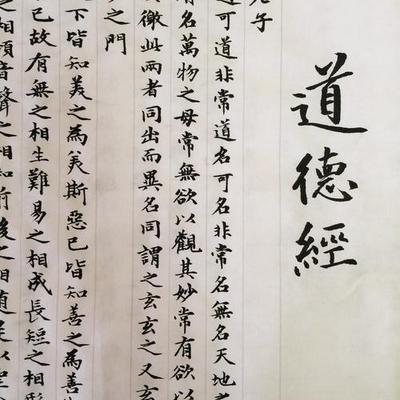 道德經
老子
道可道非常道名可名非常名無名天地
有名萬物之母常無欲以觀其妙常有欲以
徼此兩者同出而異名同謂之玄玄之又玄
之門
下皆知美之為美斯惡已皆知善之為善
已故有無之相生難易之相成長短之相形
之相傾音聲之相和前後之相隨是以聖